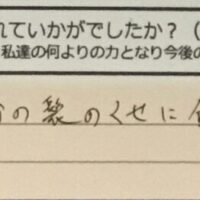 れていかがでしたか？（
私達の何よりの力となり今後の
の髪のくせに